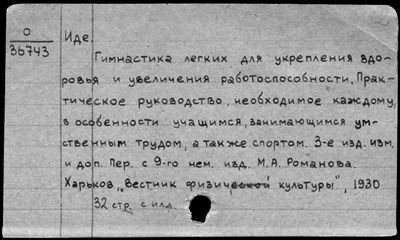 0
36743
Иде.
Гимнастика легких для укрепления здо-
ровья и увеличения работоспособности. Прак-
тическое руководство, необходимое каждому,
в особенности учащимся, занимающимся ум-
ственным трудом, а также спортом. 3-е изд. изм.
и доп. Пер. с 9-го нем. изд. М.А. Романова.
Харьков, "Вестник физической культуры", 1930
32 стр. с илл.